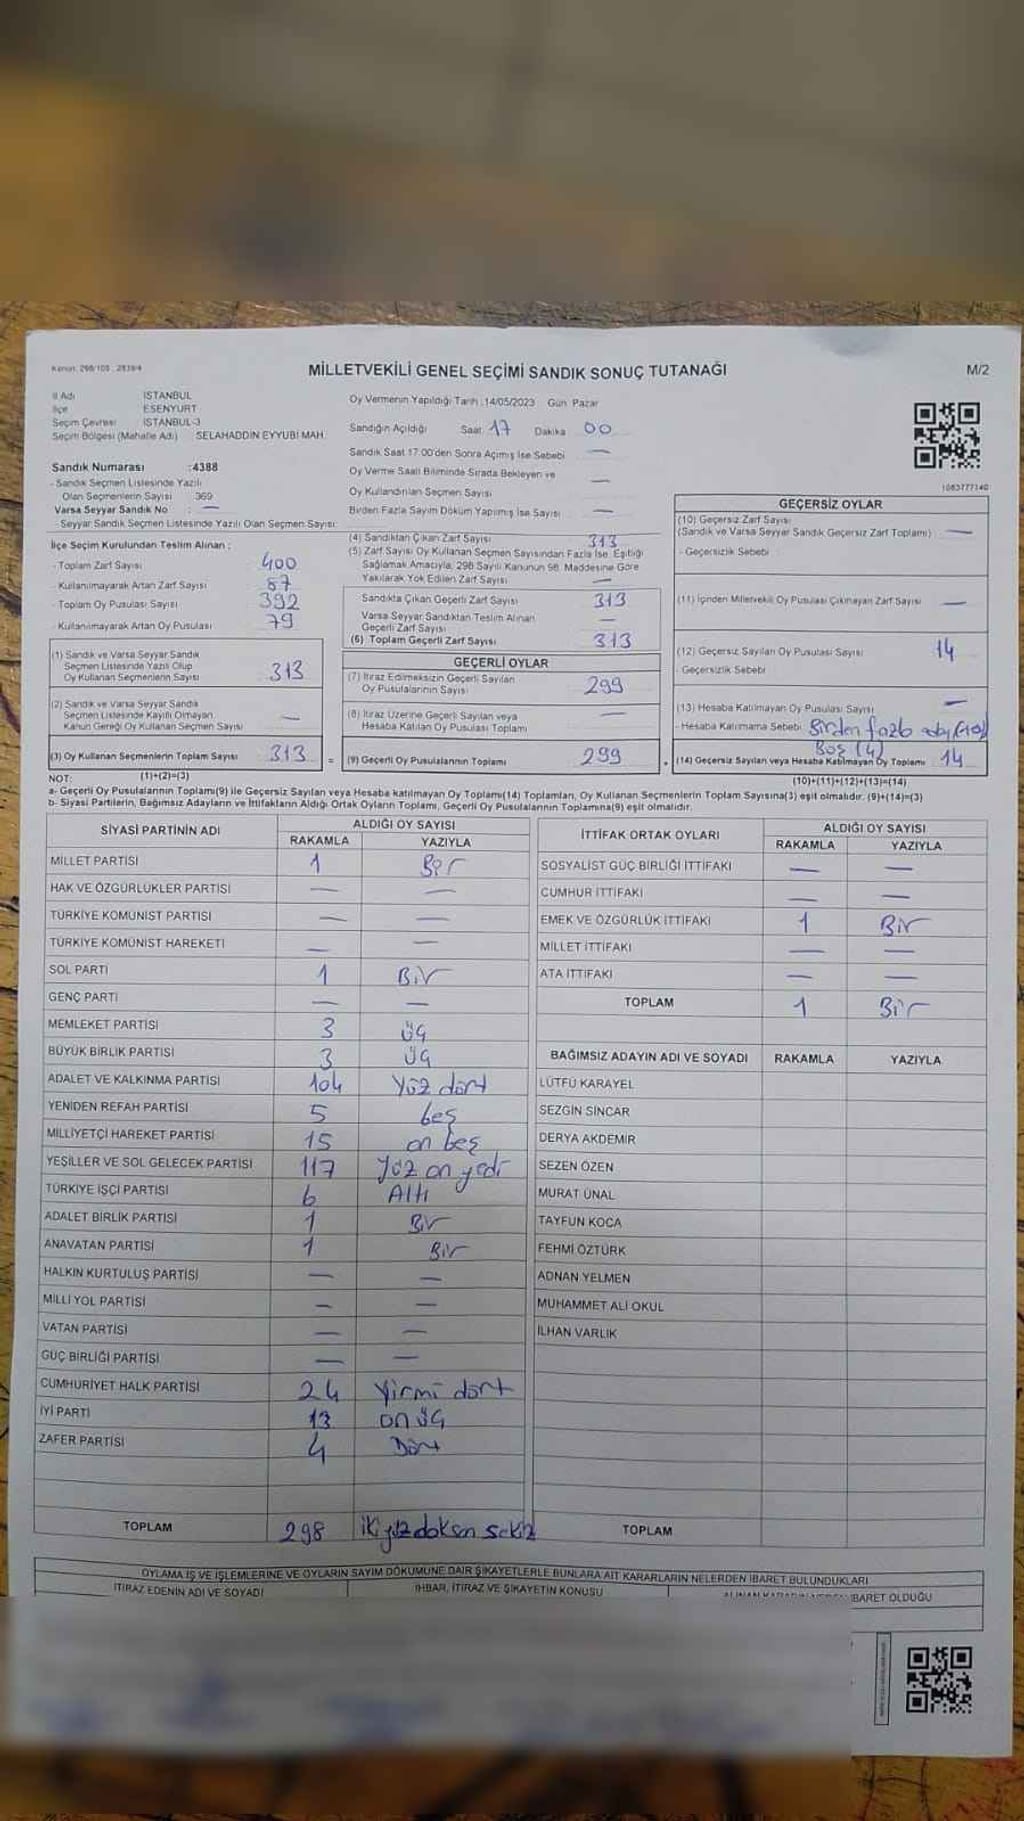 Kanun: 298/105, 2839/4
MİLLETVEKİLİ GENEL SEÇİMİ SANDIK SONUÇ TUTANAĞI
M/2
İl Adı İSTANBUL
İlçe ESENYURT
Seçim Çevresi İSTANBUL-3
Seçim Bölgesi (Mahalle Adı) SELAHADDİN EYYUBİ MAH.
Sandık Numarası :4388
- Sandık Seçmen Listesinde Yazılı
Olan Seçmenlerin Sayısı 369
Varsa Seyyar Sandık No : —
- Seyyar Sandık Seçmen Listesinde Yazılı Olan Seçmen Sayısı:
İlçe Seçim Kurulundan Teslim Alınan :
- Toplam Zarf Sayısı 400
- Kullanılmayarak Artan Zarf Sayısı 87
- Toplam Oy Pusulası Sayısı 392
- Kullanılmayarak Artan Oy Pusulası 79
(1) Sandık ve Varsa Seyyar Sandık
Seçmen Listesinde Yazılı Olup
Oy Kullanan Seçmenlerin Sayısı 313
(2) Sandık ve Varsa Seyyar Sandık
Seçmen Listesinde Kayıtlı Olmayan
Kanun Gereği Oy Kullanan Seçmen Sayısı —
(3) Oy Kullanan Seçmenlerin Toplam Sayısı 313 =
Oy Vermenin Yapıldığı Tarih :14/05/2023 Gün: Pazar
Sandığın Açıldığı Saat: 17 Dakika 00
Sandık Saat 17:00'den Sonra Açılmış İse Sebebi —
Oy Verme Saati Bitiminde Sırada Bekleyen ve —
Oy Kullandırılan Seçmen Sayısı
Birden Fazla Sayım Döküm Yapılmış İse Sayısı —
(4) Sandıktan Çıkan Zarf Sayısı 313
(5) Zarf Sayısı Oy Kullanan Seçmen Sayısından Fazla İse, Eşitliği
Sağlamak Amacıyla, 298 Sayılı Kanunun 98. Maddesine Göre
Yakılarak Yok Edilen Zarf Sayısı —
Sandıkta Çıkan Geçerli Zarf Sayısı 313
Varsa Seyyar Sandıktan Teslim Alınan
Geçerli Zarf Sayısı —
(6) Toplam Geçerli Zarf Sayısı 313
GEÇERLİ OYLAR
(7) İtiraz Edilmeksizin Geçerli Sayılan
Oy Pusulalarının Sayısı 299
(8) İtiraz Üzerine Geçerli Sayılan veya
Hesaba Katılan Oy Pusulası Toplamı —
(9) Geçerli Oy Pusulalarının Toplamı 299
1083777140
GEÇERSİZ OYLAR
(10) Geçersiz Zarf Sayısı
(Sandık ve Varsa Seyyar Sandık Geçersiz Zarf Toplamı) —
- Geçersizlik Sebebi
(11) İçinden Milletvekili Oy Pusulası Çıkmayan Zarf Sayısı —
(12) Geçersiz Sayılan Oy Pusulası Sayısı 14
- Geçersizlik Sebebi
(13) Hesaba Katılmayan Oy Pusulası Sayısı —
- Hesaba Katılmama Sebebi Birden fazla
Boş (4)
(14) Geçersiz Sayılan veya Hesaba Katılmayan Oy Toplamı 14
NOT: (1)+(2)=(3)
(10)+(11)+(12)+(13)=(14)
a- Geçerli Oy Pusulalarının Toplamı(9) ile Geçersiz Sayılan veya Hesaba katılmayan Oy Toplamı(14) Toplamları, Oy Kullanan Seçmenlerin Toplam Sayısına(3) eşit olmalıdır. (9)+(14)=(3)
b- Siyasi Partilerin, Bağımsız Adayların ve İttifakların Aldığı Ortak Oyların Toplamı, Geçerli Oy Pusulalarının Toplamına(9) eşit olmalıdır.
SİYASİ PARTİNİN ADI ALDIĞI OY SAYISI
RAKAMLA YAZIYLA
MİLLET PARTİSİ 1 Bir
HAK VE ÖZGÜRLÜKLER PARTİSİ — —
TÜRKİYE KOMÜNİST PARTİSİ — —
TÜRKİYE KOMÜNİST HAREKETİ — —
SOL PARTİ 1 Bir
GENÇ PARTİ — —
MEMLEKET PARTİSİ 3 üç
BÜYÜK BİRLİK PARTİSİ 3 üç
ADALET VE KALKINMA PARTİSİ 104 Yüz dört
YENİDEN REFAH PARTİSİ 5 beş
MİLLİYETÇİ HAREKET PARTİSİ 15 on beş
YEŞİLLER VE SOL GELECEK PARTİSİ 117 Yüz on yedi
TÜRKİYE İŞÇİ PARTİSİ 6 Altı
ADALET BİRLİK PARTİSİ 1 Bir
ANAVATAN PARTİSİ 1 Bir
HALKIN KURTULUŞ PARTİSİ — —
MİLLİ YOL PARTİSİ — —
VATAN PARTİSİ — —
GÜÇ BİRLİĞİ PARTİSİ — —
CUMHURİYET HALK PARTİSİ 24 Yirmi dört
İYİ PARTİ 13 on üç
ZAFER PARTİSİ 4 Dört
TOPLAM 298 iki yüz doksan sekiz
İTTİFAK ORTAK OYLARI ALDIĞI OY SAYISI
RAKAMLA YAZIYLA
SOSYALİST GÜÇ BİRLİĞİ İTTİFAKI — —
CUMHUR İTTİFAKI — —
EMEK VE ÖZGÜRLÜK İTTİFAKI 1 Bir
MİLLET İTTİFAKI — —
ATA İTTİFAKI — —
TOPLAM 1 Bir
BAĞIMSIZ ADAYIN ADI VE SOYADI RAKAMLA YAZIYLA
LÜTFÜ KARAYEL
SEZGİN SİNCAR
DERYA AKDEMİR
SEZEN ÖZEN
MURAT ÜNAL
TAYFUN KOCA
FEHMİ ÖZTÜRK
ADNAN YELMEN
MUHAMMET ALİ OKUL
İLHAN VARLIK
TOPLAM
OYLAMA İŞ VE İŞLEMLERİNE VE OYLARIN SAYIM DÖKÜMÜNE DAİR ŞİKAYETLERLE BUNLARA AİT KARARLARIN NELERDEN İBARET BULUNDUKLARI
İTİRAZ EDENİN ADI VE SOYADI İHBAR, İTİRAZ VE ŞİKAYETİN KONUSU İBARET OLDUĞU